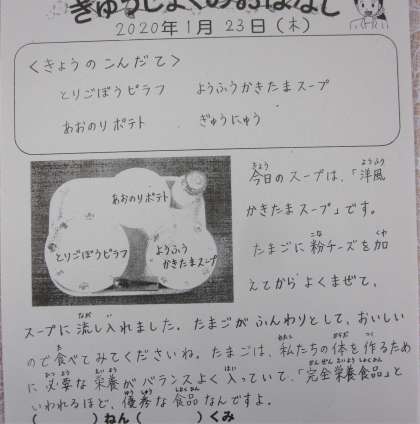 きゅうしょくのおはなし
2020年1月23日(木)
＜きょうのこんだて＞
とりごぼうピラフ ようふうかきたまスープ
あおのりポテト ぎゅうにゅう
あおのりポテト
とりごぼうピラフ
ようふう
かきたまスープ
今日のスープは、「洋風
かきたまスープ」です。
たまごに粉チーズを加
えてからよくまぜて、
スープに流し入れました。たまごがふんわりとして、おいしい
ので食べてみてくださいね。たまごは、私たちの体を作るため
に必要な栄養がバランスよく入っていて、「完全栄養食品」と
いわれるほど、優秀な食品なんですよ。
( )ねん( )くみ